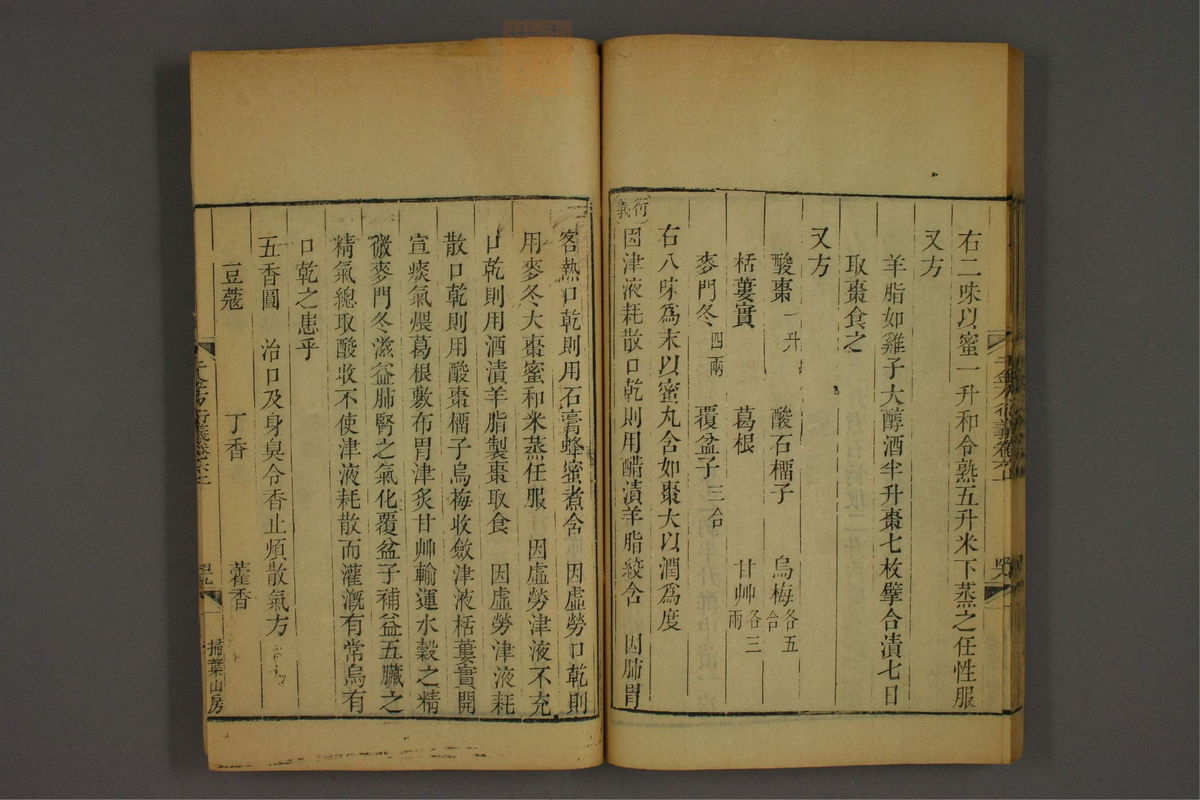 右二味以蜜一升和令熟五升米下蒸之任性服
又方
羊脂如雞子大醇酒半升棗七枚擘合漬七日
取棗食之
又方
酸棗一升 酸石橊子 烏梅各五合
栝蔞實 葛根 甘艸各三兩
麥門冬四兩 覆盆子三合
右八味爲末以蜜丸含如棗大以潤爲度
衍義
因津液耗散口乾則用醋漬羊脂絞含 因肺胃
客熱口乾則用石膏蜂蜜煮含 因虛勞口乾則
用麥冬大棗蜜和米蒸任服 因虛勞津液不充
口乾則用酒漬羊脂製棗取食 因虛勞津液耗
散口乾則用酸棗橊子烏梅收斂津液栝蔞實開
宣痰氣煨葛根敷布胃津炙甘艸輸運水穀之精
微麥門冬滋益肺腎之氣化覆盆子補益五臟之
精氣總取酸收不使津液耗散而灌漑有常烏有
口乾之患乎
五香圓 治口及身臭令香止煩散氣方
豆蔻 丁香 藿香
千金方衍義卷六上
掃葉山房